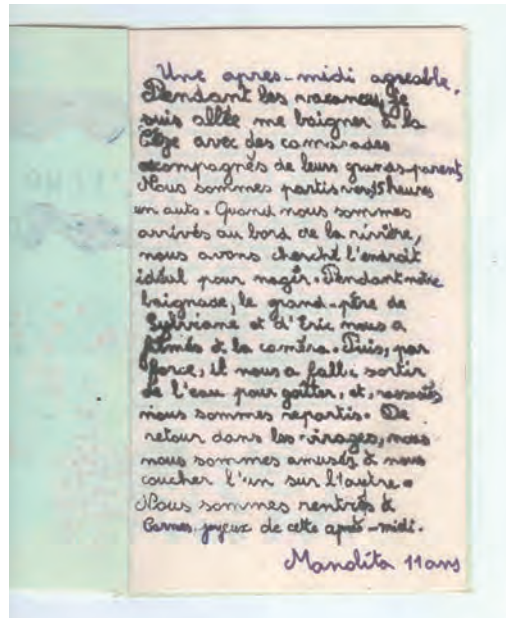 Une apres-midi agreable.
Pendant les vacances, je
suis allée me baigner à la
Cèze avec des camarades
accompagnés de leurs grands-parent
Nous sommes partis vers 15 heures
en auto. Quand nous sommes
arrivés au bord de la rivière,
nous avons cherché l'endroit
idéal pour nager. Pendant notre
baignade, le grand-père de
Sylviane et d'Eric nous a
filmés à la caméra. Puis, par
force, il nous a fallu sortir
de l'eau pour goûter, et,
nous sommes repartis. De
retour dans les virages, nous
nous sommes amusés à nous
coucher l'un sur l'autre.
Nous sommes rentrés à
joyeux de cette après-midi.
Manolita 11 ans